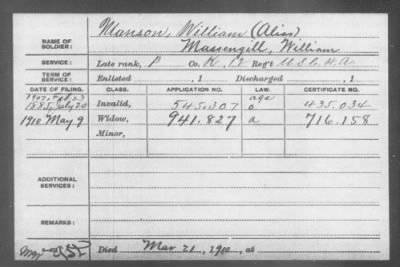 NAME OF SOLDIER: Manson, William (Alias)
Massengill, William
SERVICE: Late rank, P Co. K, 12 Reg't U S C H A.
TERM OF SERVICE: Enlisted , 1 Discharged , 1
DATE OF FILING. CLASS. APPLICATION NO. LAW. CERTIFICATE NO.
1907, Feb 23 age
1885, July 20 Invalid, 545.307 o 435.034
1910 May 9 Widow, 941.827 a 716.158
Minor,
ADDITIONAL SERVICES:
REMARKS:
Died Mar 21, 1910, at